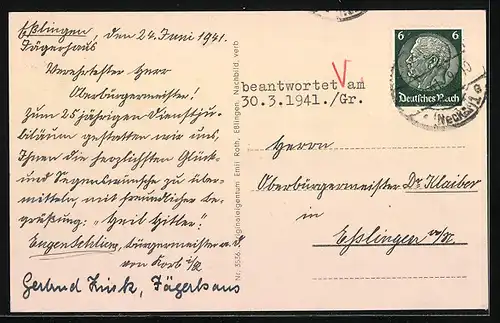 Eßlingen, den 24. Juni 1941.
Jägerhaus
Verehrtester Herr
Oberbürgermeister!
Zum 25 jährigen Dienstju-
biläum gestatten wir uns,
Ihnen die herzlichsten Glück-
und Segenswünsche zu über-
mitteln, mit freundlicher Be-
grüßung: "Heil Hitler".
Eugen Bürgermeister a. D.
von Korb i/R
Gertrud Jägerhaus
Nr. 5536 Originaleigentum Emil Roth, Eßlingen, Nachbild. verb.
beantwortet am
30.3.1941./Gr.
6 6
Deutsches Reich
(Neckar) 1
Herrn
Oberbürgermeister Dr. Klaiber
in
Eßlingen a/N.